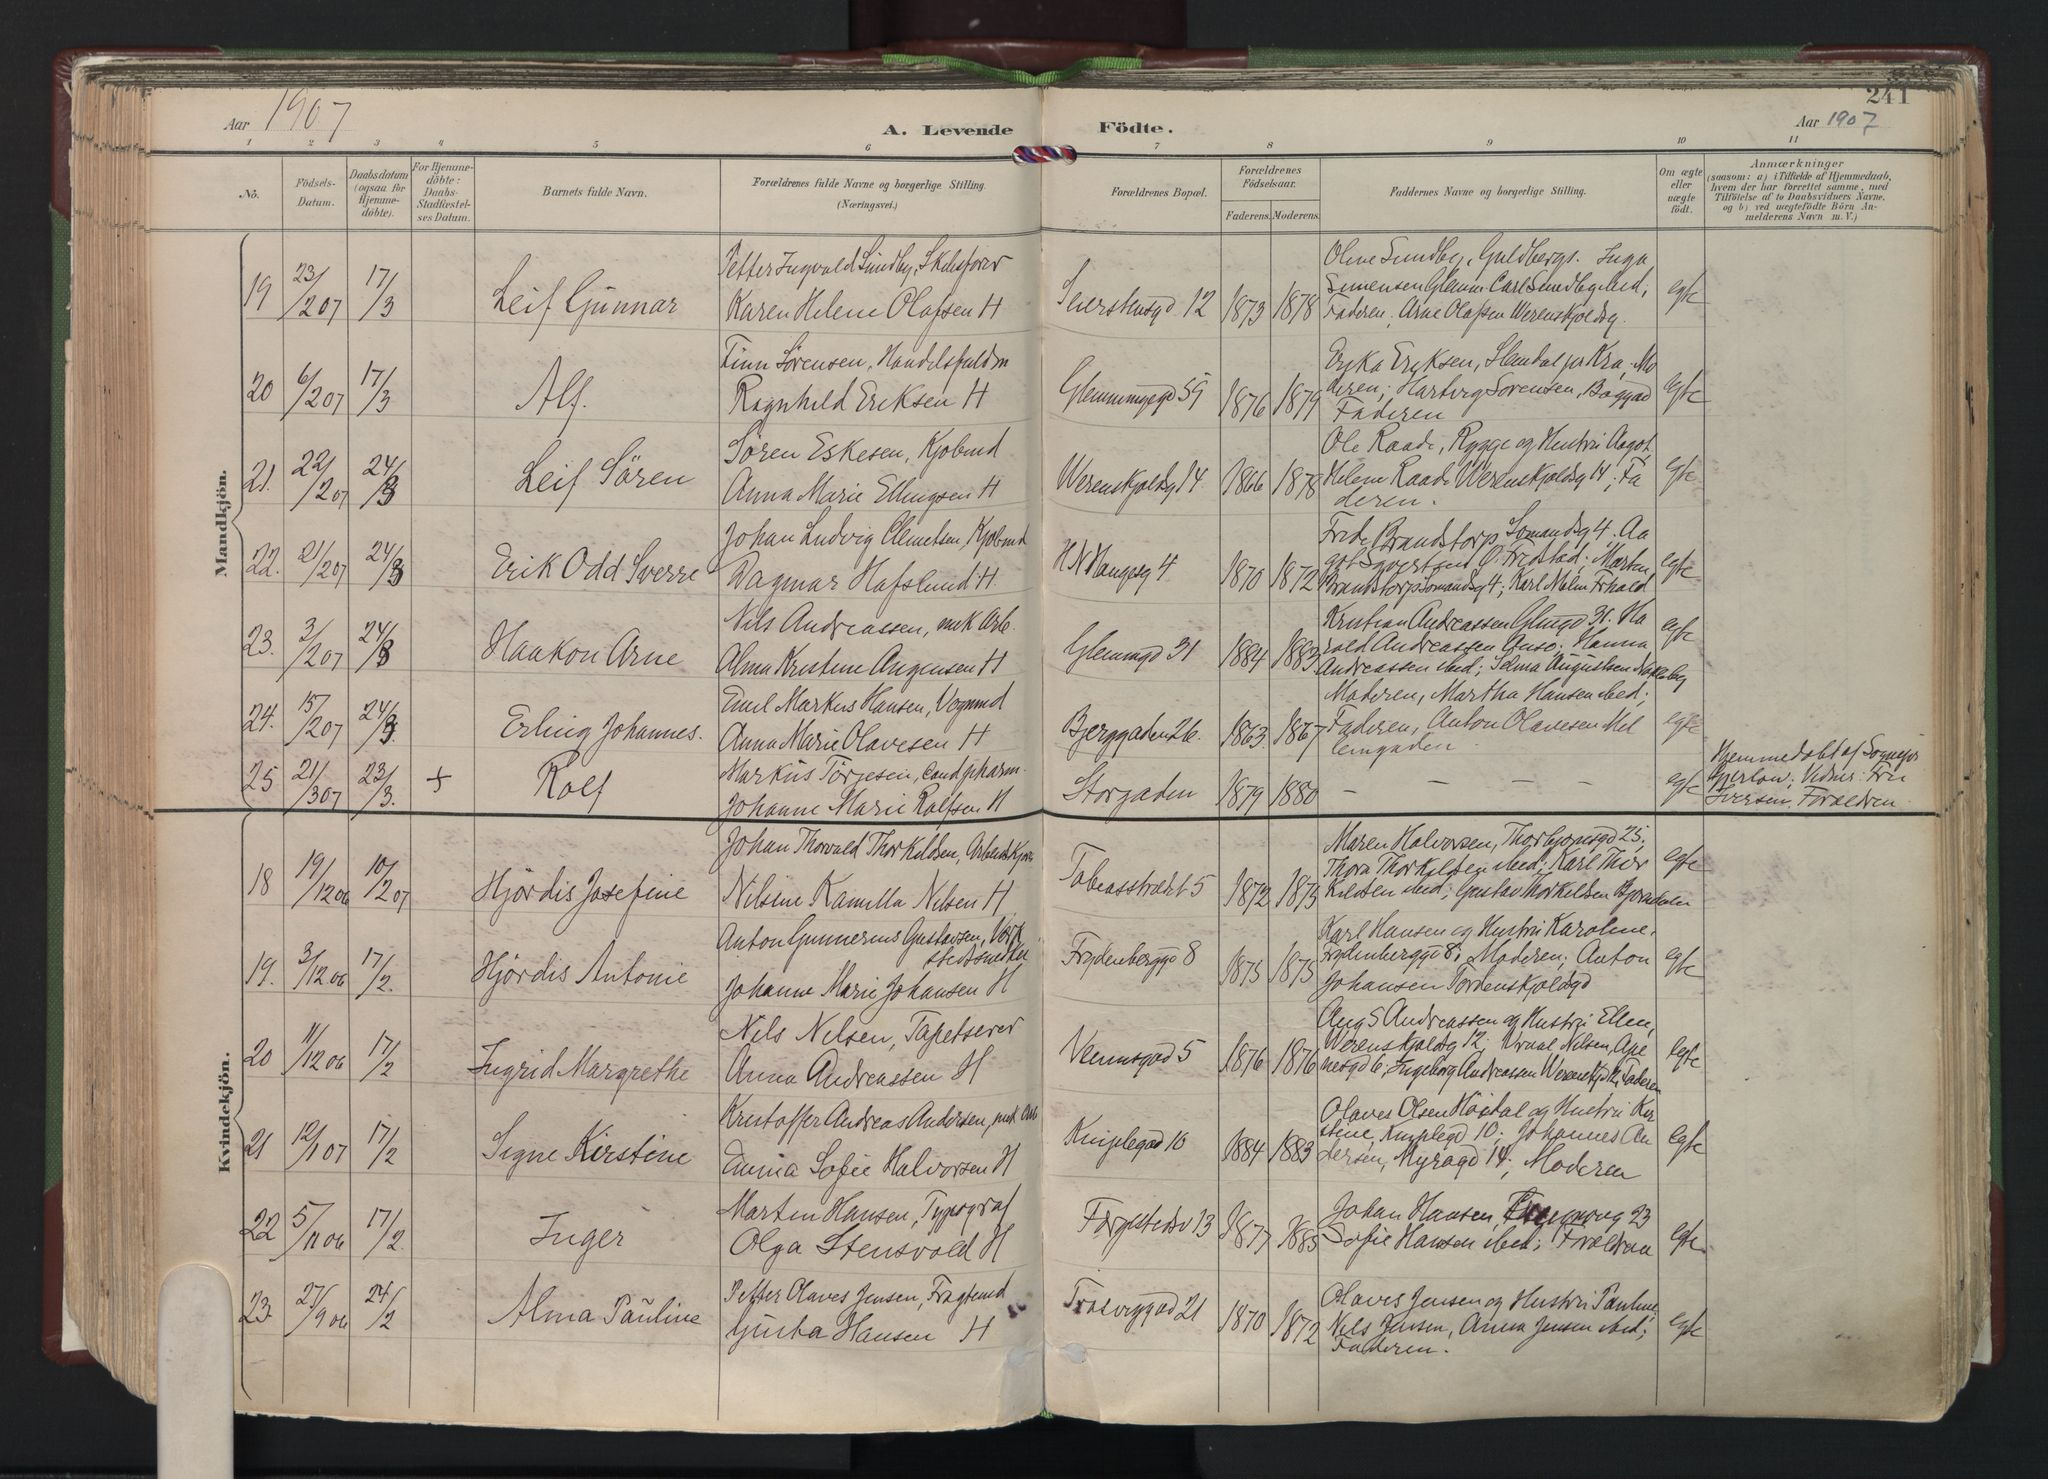 241
Aar 1907
A. Levende Födte.
Aar 1907
1 2 3 4 5 6 7 8 9 10 11
No.
Födsels-Datum.
Daabsdatum (ogsaa for Hjemme-döbte).
For Hjemme-döbte: Daabs-Stadfæstel-ses Datum.
Barnets fulde Navn.
Forældrenes fulde Navne og borgerlige Stilling.
(Næringsvei.)
Forældrenes Bopæl.
Forældrenes Födselsaar.
Faderens. Moderens.
Faddernes Navne og borgerlige Stilling.
Om ægte eller uægte födt.
Anmærkninger
(saasom: a) i Tilfælde af Hjemmedaab, hvem der har forrettet samme, med Tilföielse af to Daabsvidners Navne, og b) ved uægtefödte Börn Anmelderens Navn m. V.)
Mandkjön.
19 23/2 07 17/3 Leif Gunnar
Petter Ingvald Sundby, Skibsfører
Karen Helene Olafsen H
12 1873 1878
Oline Sundby, Guldbergs. Inga
Simensen Glemm. Carl Sundby ibid,
Faderen, Arne Olafsen Werenskjoldsg.
egte
20 6/2 07 17/3 Alf.
Finn Sørensen, Handelsfuldm
Ragnhild Eriksen H
Glemmengd 59 1876 1879
Eriksen, Slemdal pr Kra, Mo
deren; Hartvig Sørensen,
Faderen
egte
21. 22/2 07 24/3 Leif Sören
Sören Eskesen, Kjøbmd
Anna Marie Ellingsen H
Werenskjoldsg 14 1866 1878
Ole Raade, Rygge og Hustru Aagot
Helene Raade Werenskjoldsg 14; Fa
deren.
egte
22. 21/2 07 24/3 Erik Odd Sverre
Johan Ludvig Clemetsen, Kjøbmd
Dagmar Hafslund H
H N Haugesg 4 1870 1872
Brandstorp Somandsg 4. Aa
got Syvertsen Ø Fredstad; Marten
Brandstorp Somandsg 4; Karl
egte
23. 3/2 07 24/3 Haakon Arne
Nils Andreassen, mek Arb.
Alma Kristine Augensen H
Glemmgd 31 1884 1883
Kristian Andreassen Glmgd 31. Ha
rald Andreassen Hanna
Andreassen ibid; Selma Augustsen
egte
24. 15/2 07 24/3 Erling Johannes.
Emil Markus Hansen, Vognmd
Anna Marie Olavesen H
Bjerggaden 26. 1863 1867
Moderen, Martha Hansen ibid;
Faderen, Anton Olavesen Mel
lemgaden
egte
25 21/3 07 23/3. + Rolf
Markus Torjesen, Cand pharm
Johanne Marie Rolfsen H
Storgaden 1879 1880 — — — —
egte
Hjemmedøbt af Sognepr
Gjerløw. Vidner: Frk
Iversen. Forældren
Kvindekjön.
18 19/12 06 10/2 07 Hjördis Josefine
Johan Thorvald Thorkildsen, Arbeidskjører
Nilsine Kamilla Nilsen H
Tobiasstrædet 5 1872 1873
Maren Halvorsen, Thorbjornsgd 25;
Thora Thorkildsen ibid; Karl Thor
kildsen ibid; Gustav Thorkildsen
egte
19. 3/12 06 17/2. Hjördis Antonie
Anton Gunnerius Gustavsen, Værk
stedsmedker
Johanne Marie Johansen H
Frydenberggd 8 1875 1875
Karl Hansen og Hustru Karoline,
Frydenberggd 8; Moderen; Anton
Johansen Tordenskjoldsgd
egte
20 11/12 06 17/2 Ingrid Margrethe
Nils Nelsen, Tapetserer
Anna Andreassen H
5 1876 1876
Aug S Andreassen og Hustru Ellen,
Werenskjoldsg 12; Nilsen, Ape
nesgd 6; Ingeborg Andreassen Werenskjd 12; Faderen
egte
21 12/1 07 17/2 Signe Kirstine
Kristoffer Andreas Andersen, mek Arb
Emma Sofie Halvorsen H
Kniplegd 10 1884 1883
Olaves Olsen Høidal og Hustru Kir
stine, Kniplegd 10; Johannes An
dersen, Myragd 14; Moderen
egte
22 5/11 06 17/2. Inger
Martin Hansen, Typograf
Olga Stensvold H
Færgestedsv 13 1877 1885
Johan Hansen, 23
Sofie Hansen ibid; Forældrene
egte
23. 27/9 06 24/2 Alma Pauline
Petter Olaves Jensen, Fragtemd
Gusta Hansen H
Trosviggd 21 1870 1872
Olaves Jensen og Hustru Pauline,
Nils Jensen, Anna Jensen ibid;
Faderen.
egte